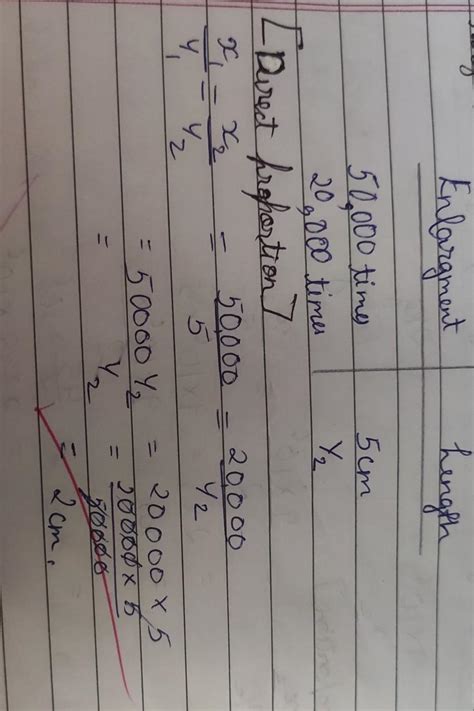 Enlargment Length
50,000 times 5cm
20,000 times Y2
[Direct proportion]
x1/y1 = x2/y2 = 50,000/5 = 20000/Y2
= 50000 Y2 = 20000 × 5
= Y2 = 20000 × 5/50000
= 2cm.